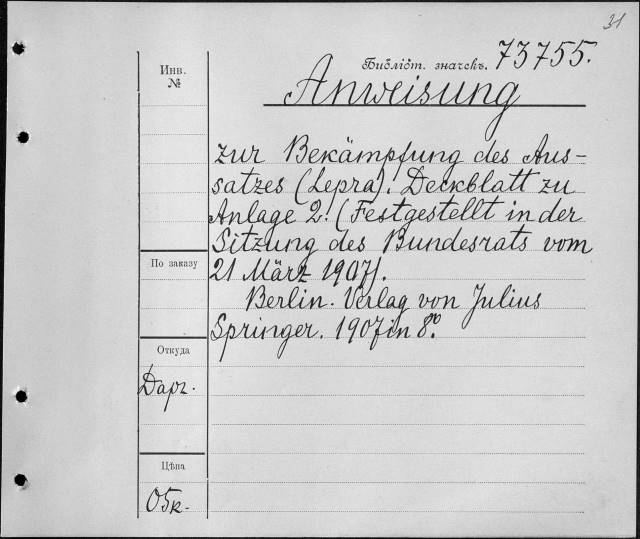 31
Библіот. значекъ. 73755.
Инв.
№
Anweisung
zur Bekämpfung des Aus-
satzes (Lepra). Deckblatt zu
Anlage 2. (Festgestellt in der
Sitzung des Bundesrats vom
По заказу
21 März 1907).
Berlin. Verlag von Julius
Springer. 1907 in 8º.
Откуда
Дарг.
Цѣна
05к.